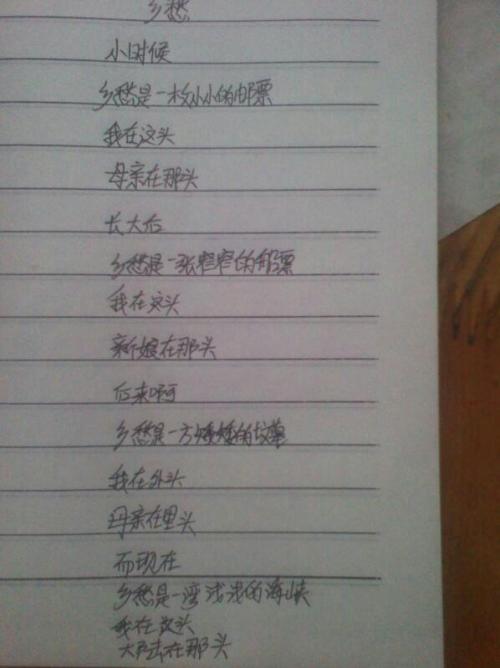 乡愁
小时候
乡愁是一枚小小的邮票
我在这头
母亲在那头
长大后
乡愁是一张窄窄的邮票
我在这头
新娘在那头
后来啊
乡愁是一方矮矮的坟墓
我在外头
母亲在里头
而现在
乡愁是一湾浅浅的海峡
我在这头
大陆在那头